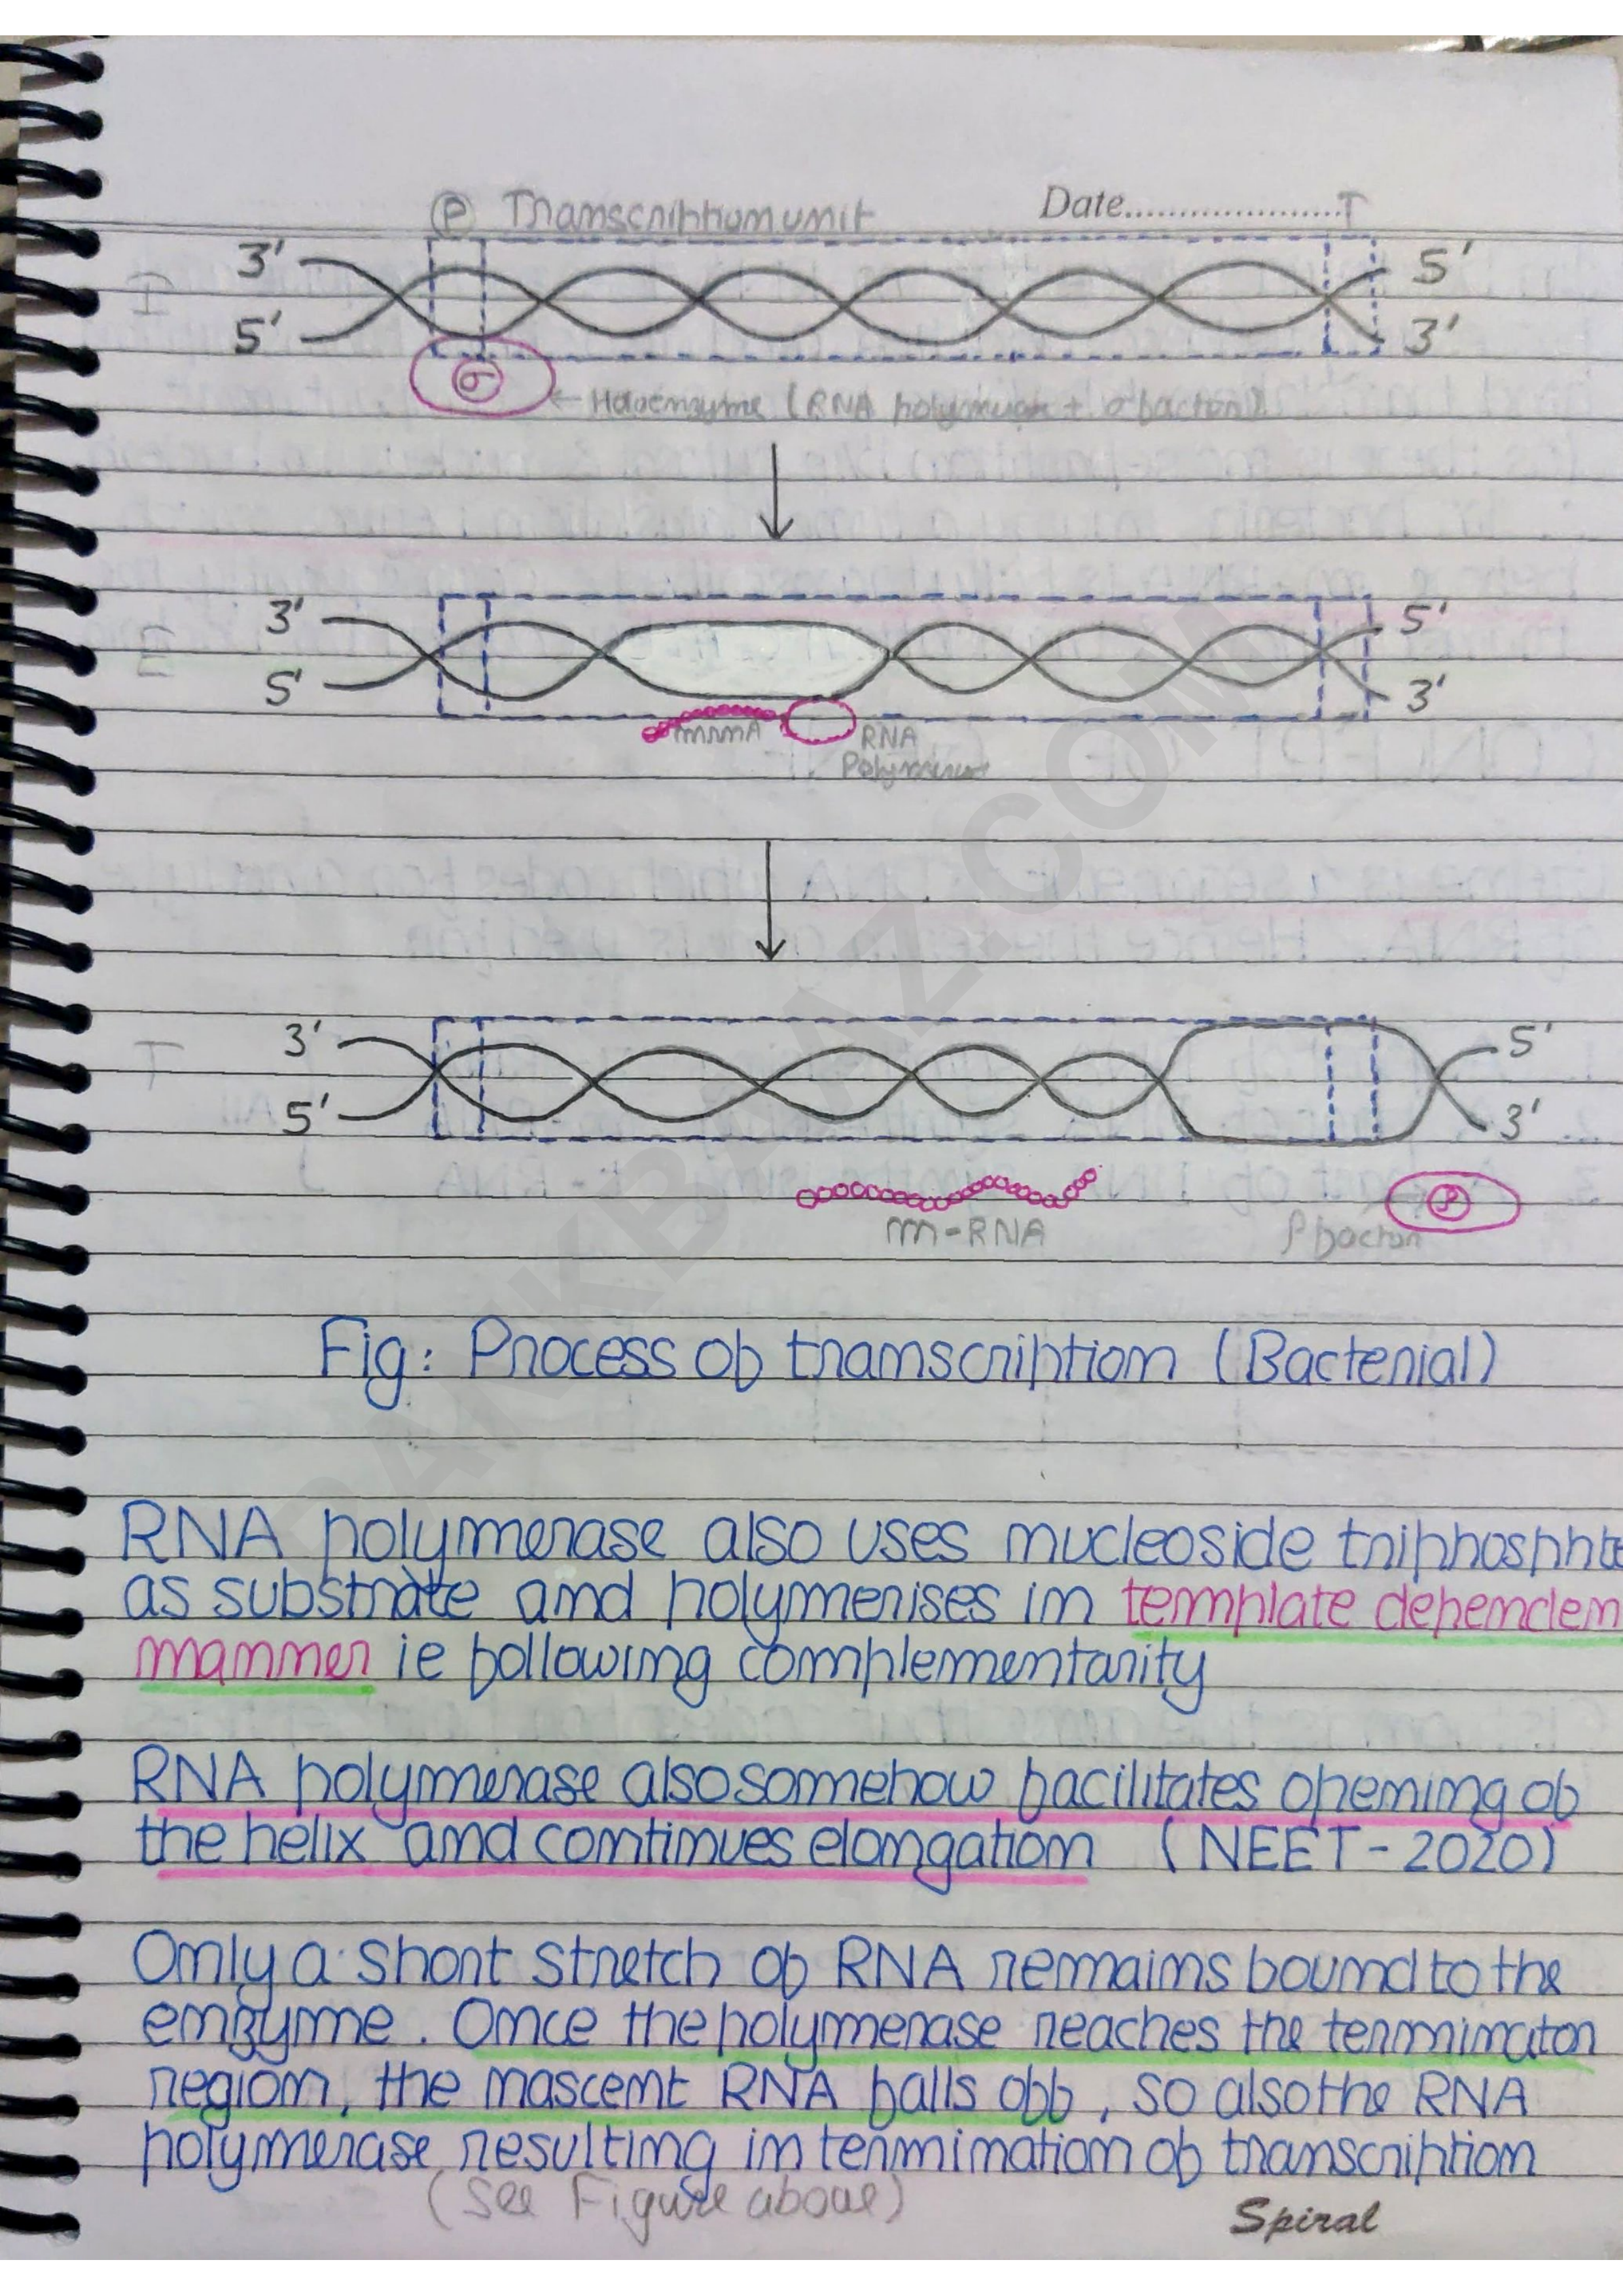 Ⓟ Transcription unit Date.....................T
3' 5'
I
5' 3'
σ
← Holoenzyme (RNA polymerase + σ factor)
3' 5'
E
5' 3'
mRNA RNA
Polymerase
3' 5'
T
5' 3'
ρ
m-RNA ρ factor
Fig: Process of transcription (Bacterial)
RNA polymerase also uses nucleoside triphosphate
as substrate and polymerises in template dependen
manner ie following complementarity
RNA polymerase also somehow facilitates opening of
the helix and continues elongation (NEET-2020)
Only a short stretch of RNA remains bound to the
enzyme. Once the polymerase reaches the terminaton
region, the nascent RNA falls off, so also the RNA
polymerase resulting in termination of transcription
(See Figure above)
Spiral